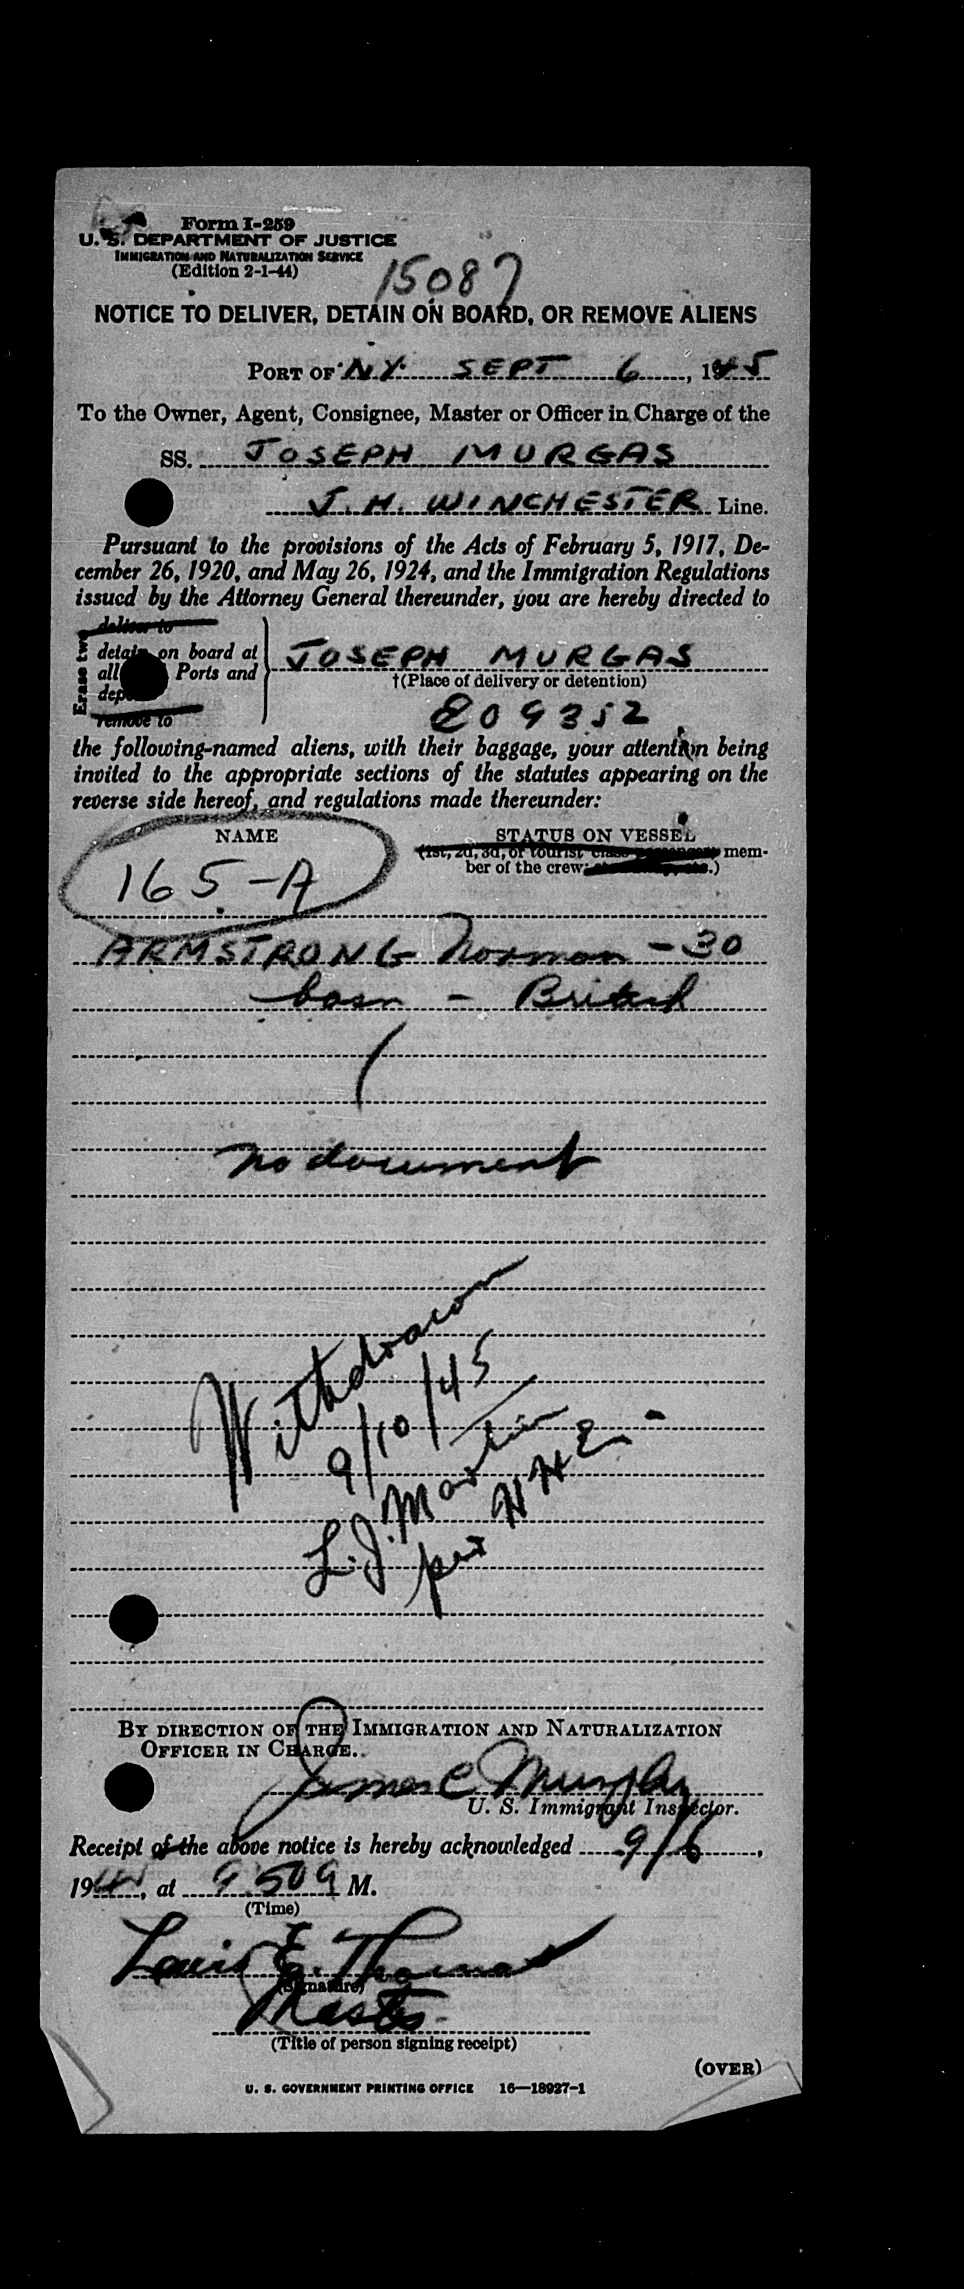 Form I-259
U. S. DEPARTMENT OF JUSTICE
IMMIGRATION AND NATURALIZATION SERVICE
(Edition 2-1-44)
15087
NOTICE TO DELIVER, DETAIN ON BOARD, OR REMOVE ALIENS
PORT OF N.Y. SEPT 6, 1945
To the Owner, Agent, Consignee, Master or Officer in Charge of the
SS. JOSEPH MURGAS
J. H. WINCHESTER Line.
Pursuant to the provisions of the Acts of February 5, 1917, De-
cember 26, 1920, and May 26, 1924, and the Immigration Regulations
issued by the Attorney General thereunder, you are hereby directed to
Erase two
deliver to
detain on board at
all Ports and
JOSEPH MURGAS
†(Place of delivery or detention)
remove to
E09352
the following-named aliens, with their baggage, your attention being
invited to the appropriate sections of the statutes appearing on the
reverse side hereof, and regulations made thereunder:
NAME
STATUS ON VESSEL
(1st, 2d, 3d, or tourist class passenger, mem-
ber of the crew; .)
165-A
ARMSTRONG Norman - 30
bosn - British
no document
Withdrawn
9/10/45
L.J. Martin
per HHE
BY DIRECTION OF THE IMMIGRATION AND NATURALIZATION
OFFICER IN CHARGE.
James C Murphy
U. S. Immigrant Inspector.
Receipt of the above notice is hereby acknowledged 9/6,
194, at 9 50 A M.
(Time)
Louis E. Thomas
(Signature)
Master
(Title of person signing receipt)
(OVER)
U. S. GOVERNMENT PRINTING OFFICE 16—18927-1